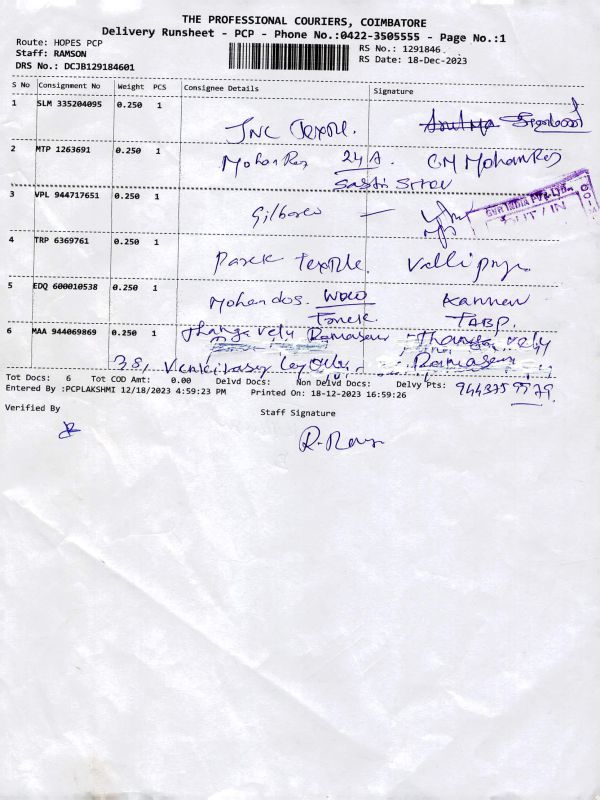 THE PROFESSIONAL COURIERS, COIMBATORE
Delivery Runsheet - PCP - Phone No.:0422-3505555 - Page No.:1
Route: HOPES PCP
Staff: RAMSON
DRS No.: DCJB129184601
RS No.: 1291846
RS Date: 18-Dec-2023
S No Consignment No Weight PCS Consignee Details Signature
1 SLM 335204095 0.250 1
JNC Textile.
2 MTP 1263691 0.250 1 Mohan 24 A. GM Mohan
3 VPL 944717651 0.250 1
Gilbarco
GVR INDIA PVT. LTD.
4 TRP 6369761 0.250 1
Textile.
5 EDQ 600010538 0.250 1
Mohandos. Kannan
6 MAA 944069869 0.250 1 Thangavelu Ramasam Thangavelu
38, Ramasam
Tot Docs: 6 Tot COD Amt: 0.00 Delvd Docs: Non Delvd Docs: Delvy Pts:
9443759979
Entered By :PCPLAKSHMI 12/18/2023 4:59:23 PM Printed On: 18-12-2023 16:59:26
Verified By
Staff Signature